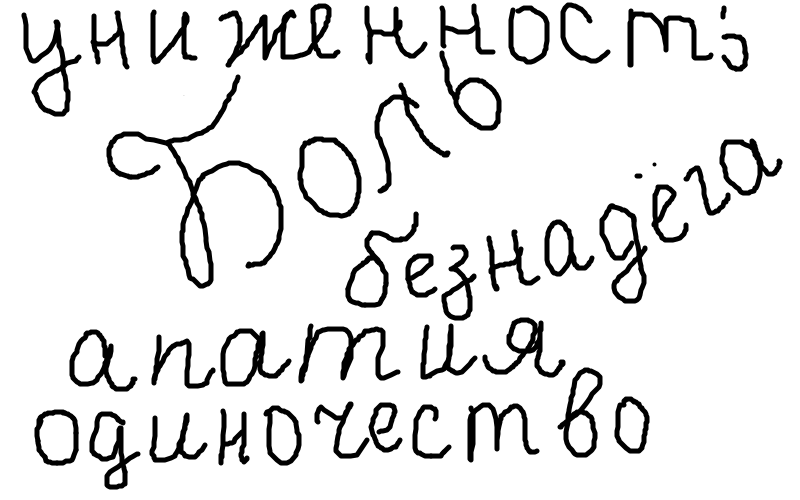 униженность
Боль
безнадёга
апатия
одиночество